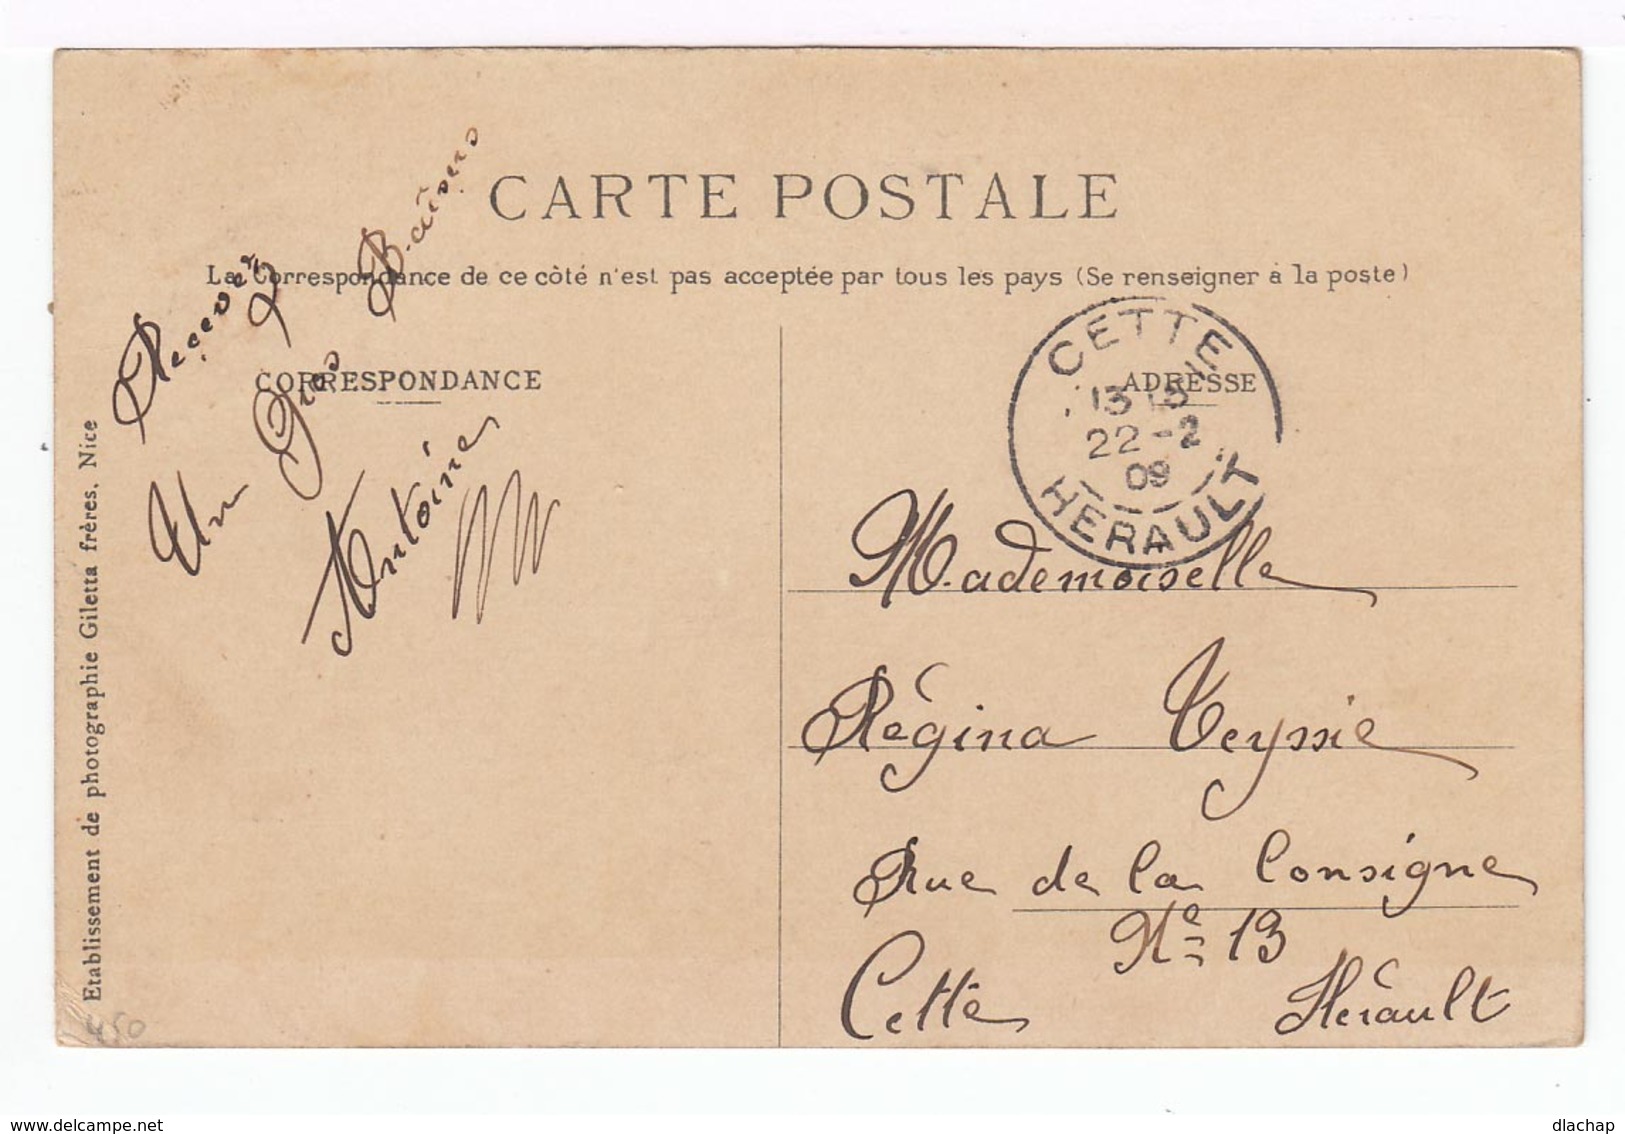 CARTE POSTALE
La Correspondance de ce côté n'est pas acceptée par tous les pays (Se renseigner à la poste)
CORRESPONDANCE
Recevez
Un Gros Baisers
Antoine
Etablissement de photographie Giletta frères. Nice
450
ADRESSE
CETTE
13
22-2
09
HERAULT
Mademoiselle
Régina Teyssie
Rue de la Consigne
Nº 13
Cette Hérault
www.delcampe.net
dlachap